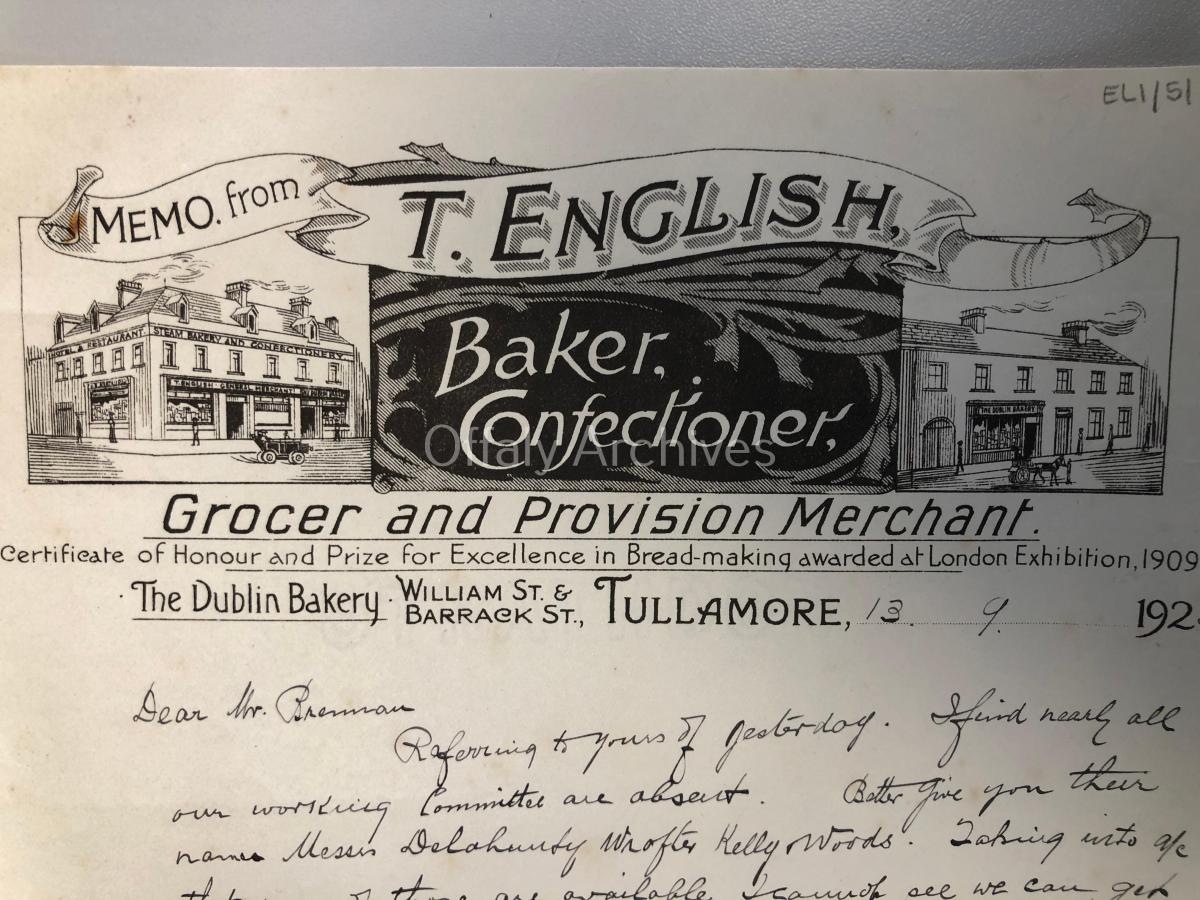 EL1/51
MEMO. from
T. ENGLISH,
HOTEL & RESTAURANT
STEAM BAKERY AND CONFECTIONERY
T. ENGLISH GENERAL MERCHANT
THE DUBLIN BAKERY
Baker,
Confectioner,
Offaly Archives
Grocer and Provision Merchant.
Certificate of Honour and Prize for Excellence in Bread-making awarded at London Exhibition, 1909
The Dublin Bakery. WILLIAM ST. & BARRACK ST., TULLAMORE, 13. 9. 192
Dear Mr. Brennan
Referring to yours of yesterday. I find nearly all
our working Committee are absent. Better give you their
names Messrs Delahunty Kelly Woods. Taking into a/c
that of those are available I cannot see we can get